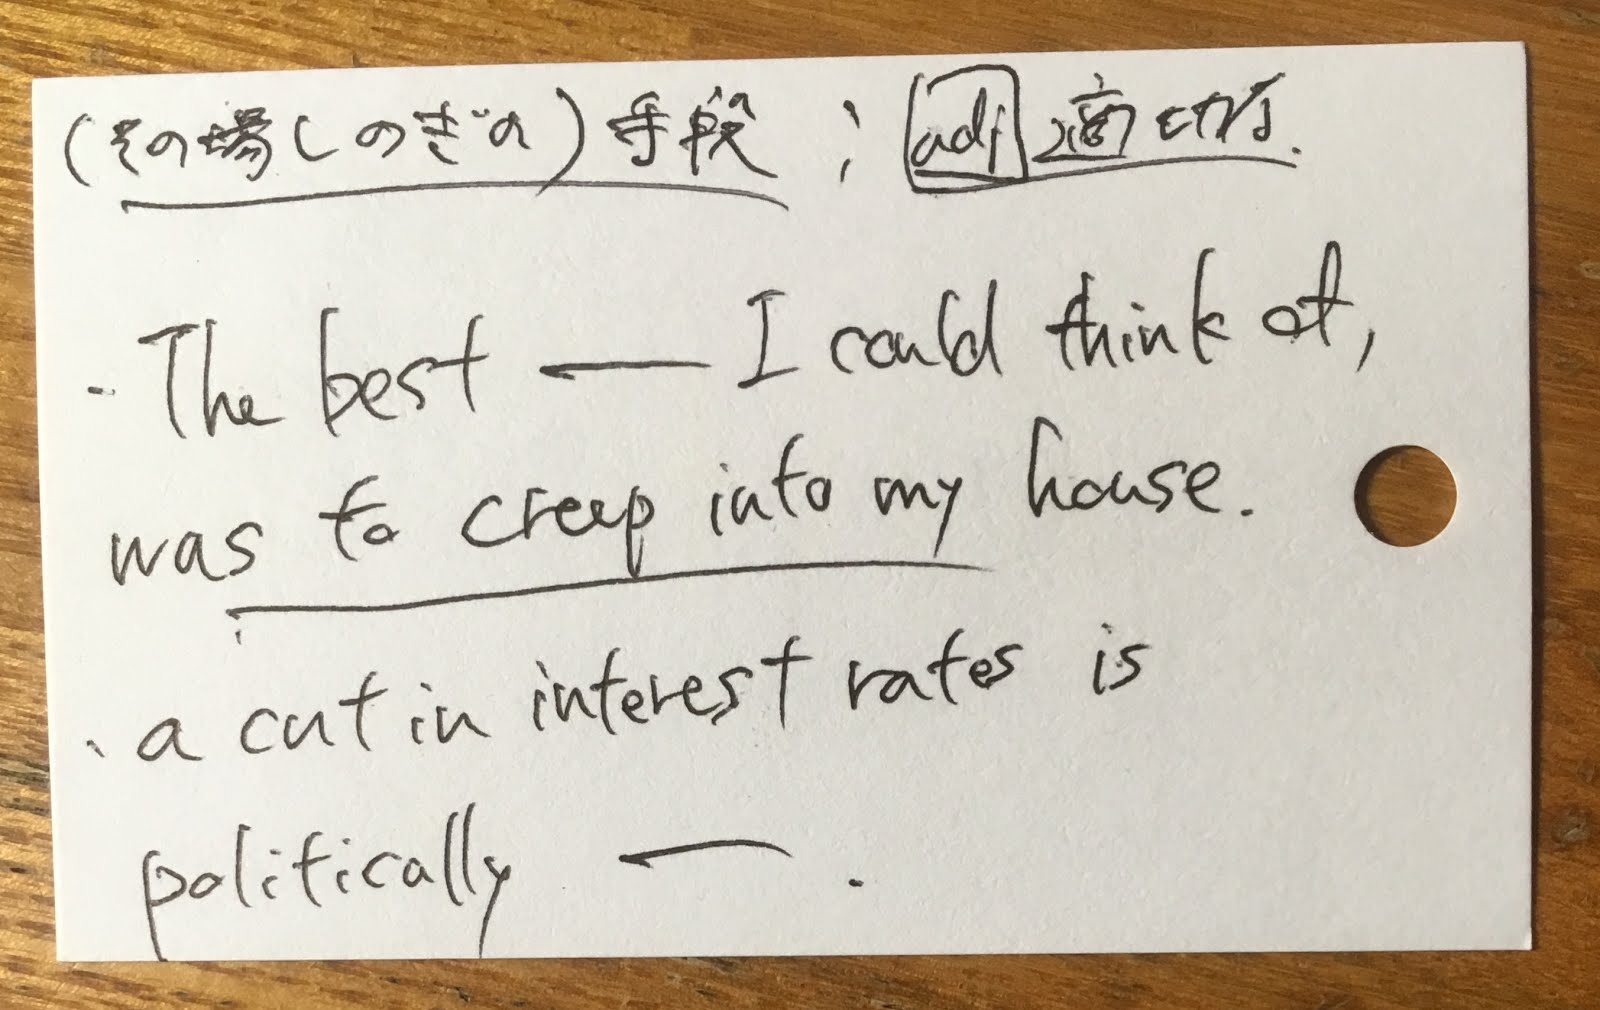 (その場しのぎの)手段 ; adj 適切な.
・The best — I could think of,
was to creep into my house.
・a cut in interest rates is
politically — .